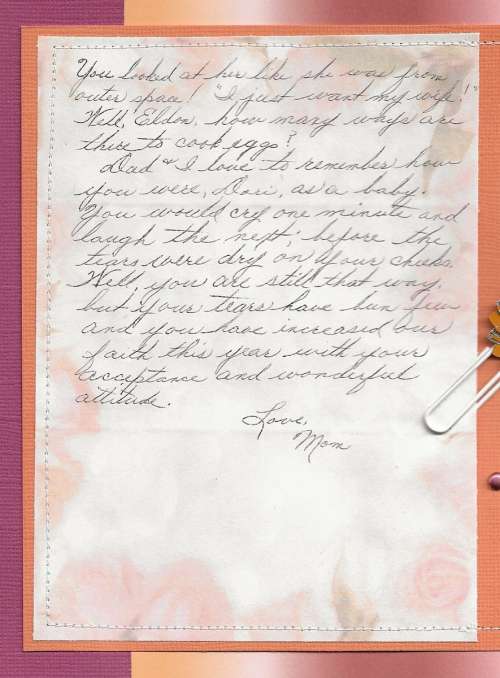 You looked at her like she was from
outer space! "I just want my wife!"
Well, Eldon, how many ways are
there to cook eggs?
Dad & I love to remember how
you were, Dori, as a baby.
You would cry one minute and
laugh the next, before the
tears were dry on your cheeks.
Well, you are still that way,
but your tears have been few
and you have increased our
faith this year with your
acceptance and wonderful
attitude.
Love,
Mom